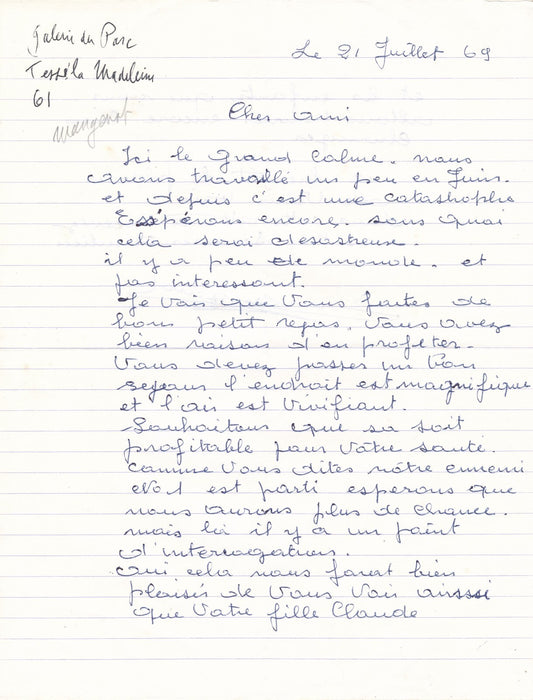 Galerie du Parc
Tessé la Madeleine
61
Le 21 Juillet 69
mangenot
Cher ami
Ici le grand calme. nous
avons travaillé un peu en Juin.
et depuis c'est une catastrophe
Espérons encore, sans quoi
cela serai desastreuse.
il y a peu de monde. et
pas interessant.
Je vois que vous faites de
bons petit repas, vous avez
bien raison d'en profiter.
Vous devez passer un bon
sejour l'endroit est magnifique
et l'air est vivifiant.
Souhaitons que sa soit
profitable pour votre santé.
comme vous dites notre ennemi
No 1 est parti esperons que
nous aurons plus de chance.
mais là il y a un point
d'interrogation.
oui cela nous ferat bien
plaisir de vous voir aussi
que votre fille Claude